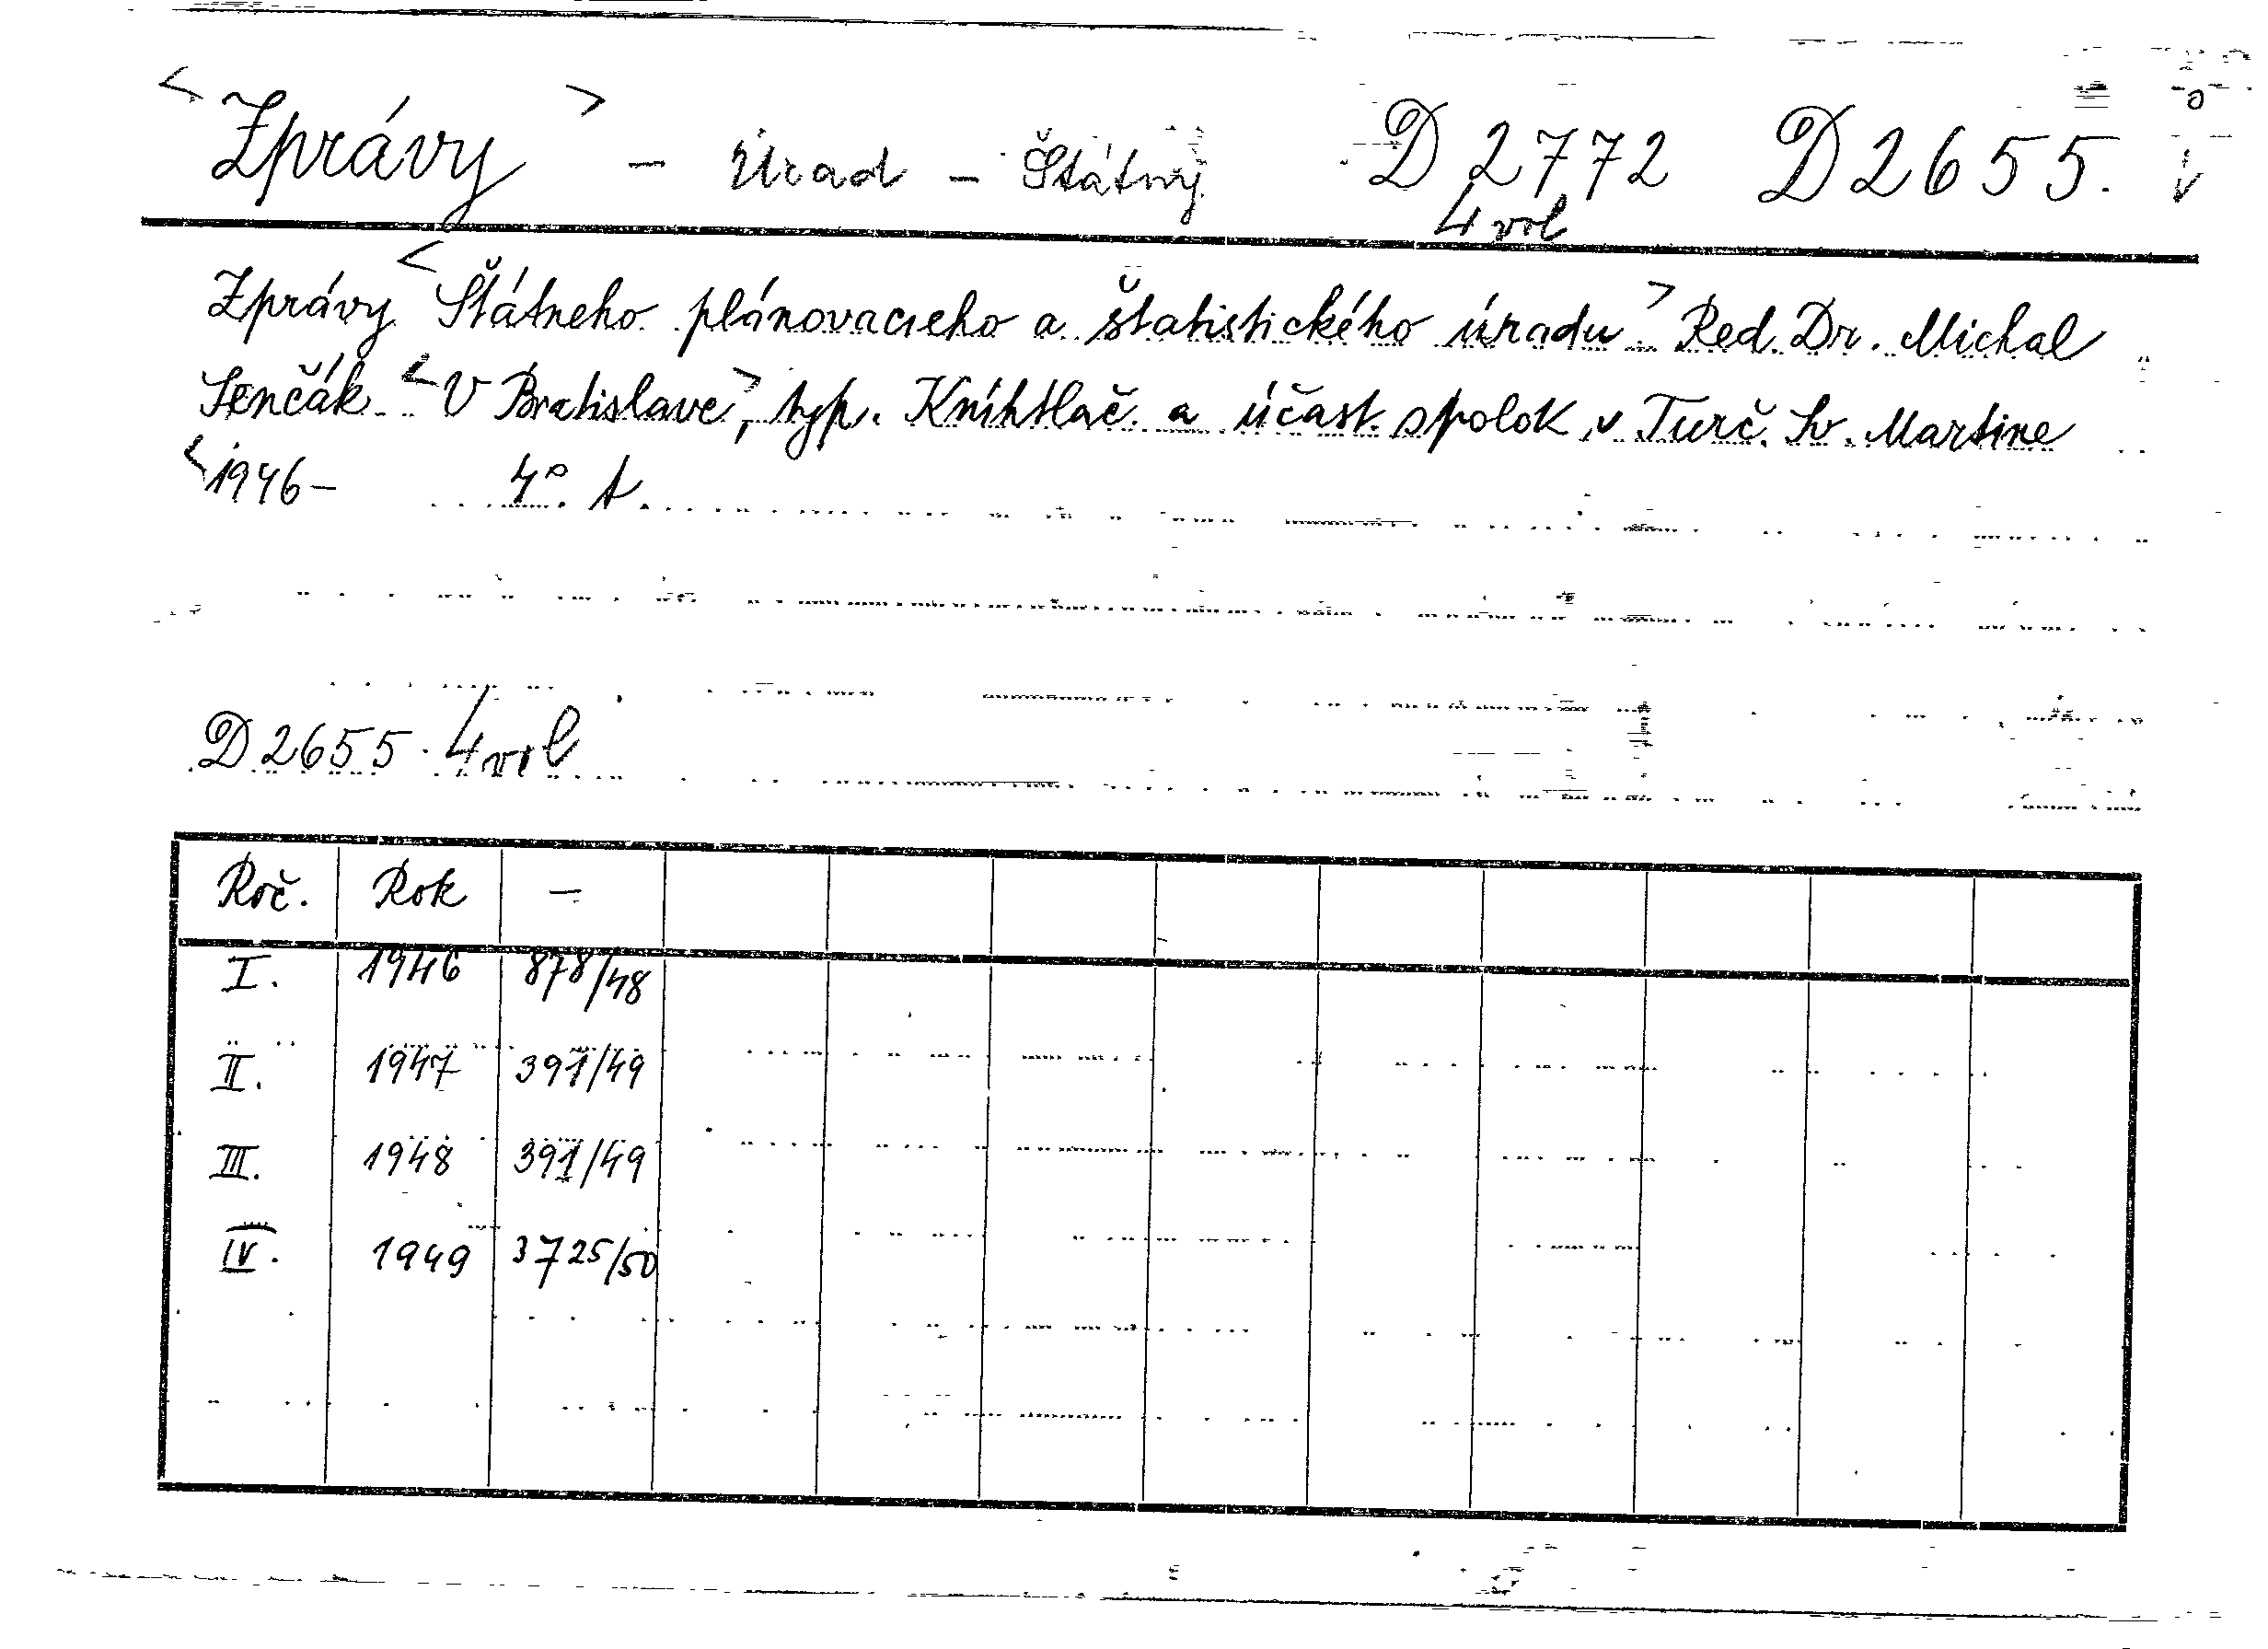 <Zprávy> - Úrad - Štátny D 2772 D 2655.
4 vol
Zprávy <Štátneho plánovacieho a štatistického úradu> Red. Dr. Michal
Senčák <V Bratislave>, typ. Kníhtlač. a účast. spolok v Turč. Sv. Martine
<1946- 4°. t.
D 2655. 4 vol
Roč. Rok -
I. 1946 878/48
II. 1947 391/49
III. 1948 391/49
IV. 1949 3725/50